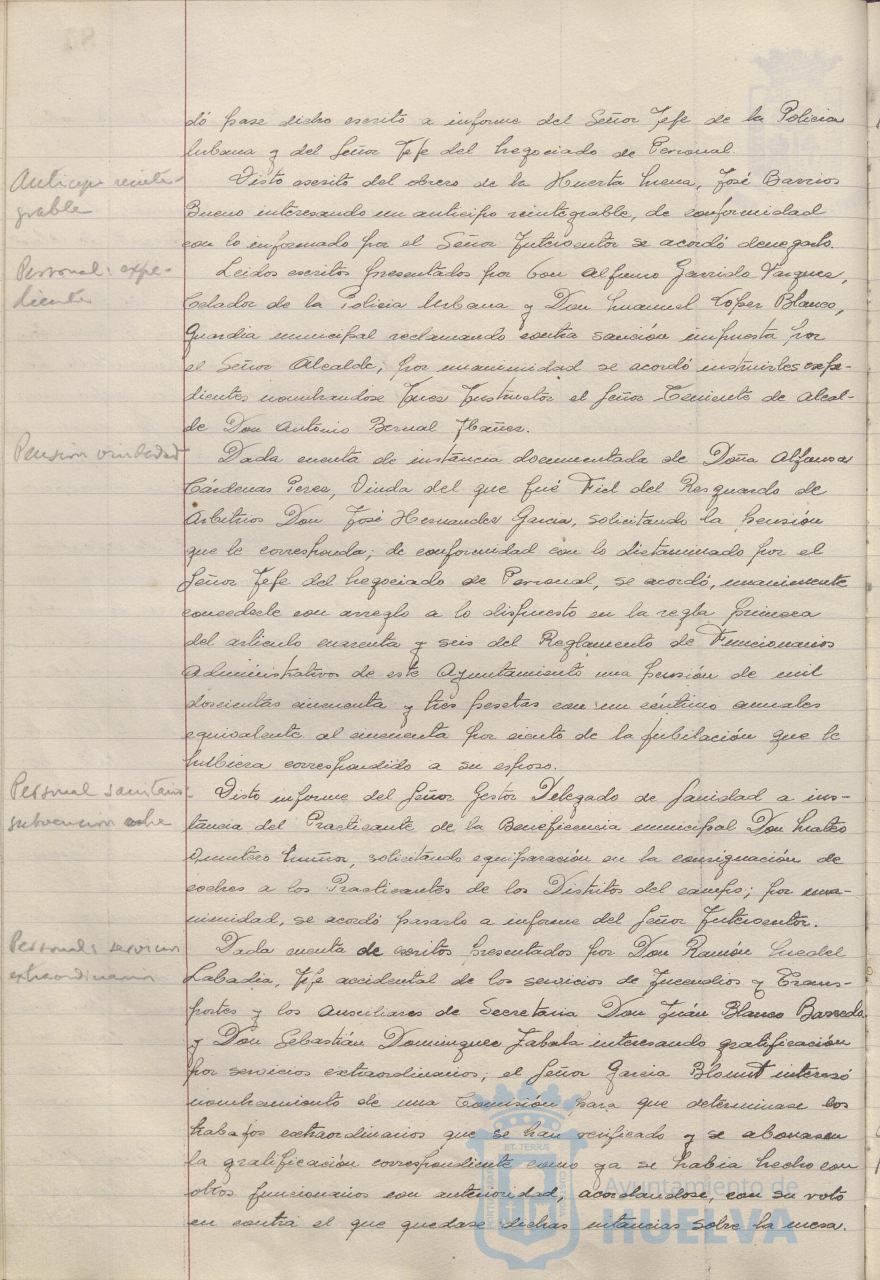 dó pase dicho escrito a informe del Señor Jefe de la Policia
Urbana y del Señor Jefe del Negociado de Personal.
Anticipo reinte-
grable
Visto escrito del obrero de la Huerta Mena, José Barrios
Bueno interesando un anticipo reintegrable, de conformidad
con lo informado por el Señor Interventor se acordó denegarlo.
Personal: expe-
diente
Leidos escritos presentados por Don Alfonso Garrido Vazquez,
Celador de la Policia Urbana y Don Manuel López Blanco,
Guardia municipal reclamando contra sanción impuesta por
el Señor Alcalde, por unanimidad se acordó instruirles expe-
dientes nombrandose Juez Instructor el Señor Teniente de Alcal-
de Don Antonio Bernal Ibañez.
Pension viudedad
Dada cuenta de instancia documentada de Doña Alfonsa
Cárdenas Perez, Viuda del que fué Fiel del Resguardo de
Arbitrios Don José Hernandez Garcia, solicitando la pensión
que le corresponda; de conformidad con lo dictaminado por el
Señor Jefe del Negociado de Personal, se acordó, unanimente
concederle con arreglo a lo dispuesto en la regla primera
del articulo cuarenta y seis del Reglamento de Funcionarios
Administrativos de este Ayuntamiento una pensión de mil
doscientas cincuenta y tres pesetas con un céntimo anuales
equivalente al cincuenta por ciento de la jubilación que le
hubiera correspondido a su esposo.
Personal sanitario:
subvencion coche
Visto informe del Señor Gestor Delegado de Sanidad a ins-
tancia del Practicante de la Beneficencia municipal Don Mateo
Quintero Muñoz, solicitando equiparación en la consignación de
coches a los Practicantes de los Distritos del campo; por una-
nimidad, se acordó pasarlo a informe del Señor Interventor.
Personal: servicios
extraordinarios
Dada cuenta de escritos presentados por Don Ramón
Labadia, Jefe accidental de los servicios de Incendios y Trans-
portes y los Auxiliares de Secretaria Don Juán Blanco Barredo
y Don Sebastián Dominguez Zabala interesando gratificación
por servicios extraordinarios; el Señor Garcia Blount interesó
nombramiento de una Comisión para que determinase los
trabajos extraordinarios que se han verificado y se abonasen
la gratificación correspondiente como ya se habia hecho con
otros funcionarios con anterioridad, acordandose, con su voto
en contra el que quedase dichas instancias sobre la mesa.
Ayuntamiento de
HUELVA